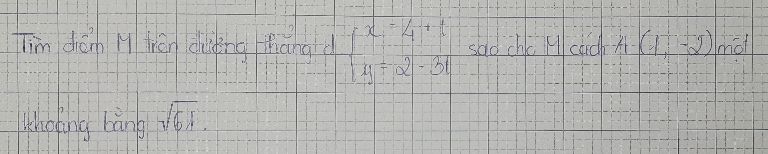 Tìm điểm M trên đường thẳng d { x = 4 + t y = 2 - 3t sao cho M cách A (1, -2) một
khoảng bằng √61.